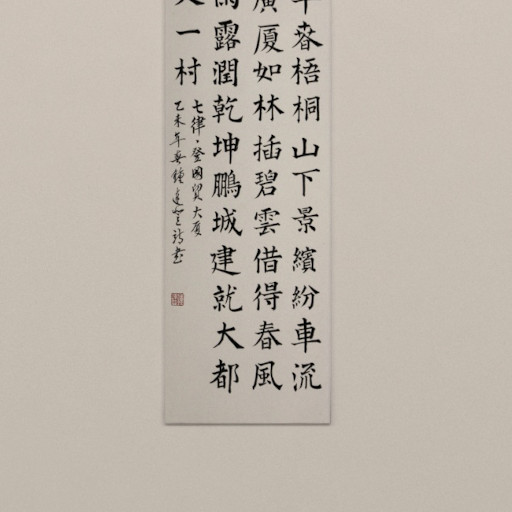 春梧桐山下景繽紛車流
廣厦如林插碧雲借得春風
雨露潤乾坤鵬城建就大都
一村
七律·登國貿大厦
乙未年